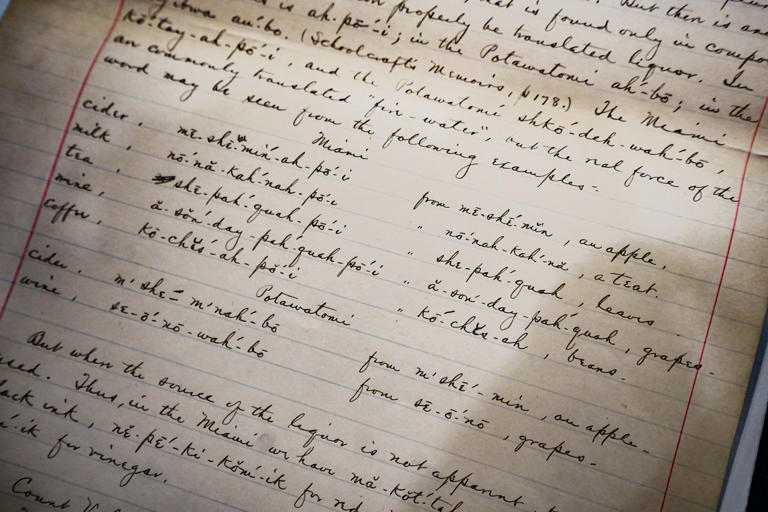 that is found only in
But then is an
is ah-pō-i; in the Potawatomi ah-bō; in the
properly be translated liquor. In
ibwa au-bo. (Schoolcraft's Memoirs, p 178.) The Miami
kō-tay-ah-pō-i, and the Potawatomi shkō-deh-wah-bō,
are commonly translated "fire-water", but the real force of the
word may be seen from the following examples:-
Miami
cider, mē-shē-min-ah-pō-i from mē-shē-min, an apple.
milk, nō-nă-kah-nah-pō-i " nō-nah-kah-nă, a teat.
tea, shē-pah-quah-pō-i " she-pah-quah, leaves
wine, ă-son-day-pah-quah-pō-i " ă-son-day-pah-quah, grapes.
coffee, kō-chis-ah-pō-i " kō-chis-ah, beans.
Potawatomi
cider, m'shē-m'nah-bō from m'shē-min, an apple.
wine, sē-ō-nō-wah-bō from sē-ō-nō, grapes.
But when the source of the liquor is not apparent
used. Thus, in the Miami we have mă-kōt-
ack ink, nē-pē-ki-kōm-ik for
ik for vinegar.
Count